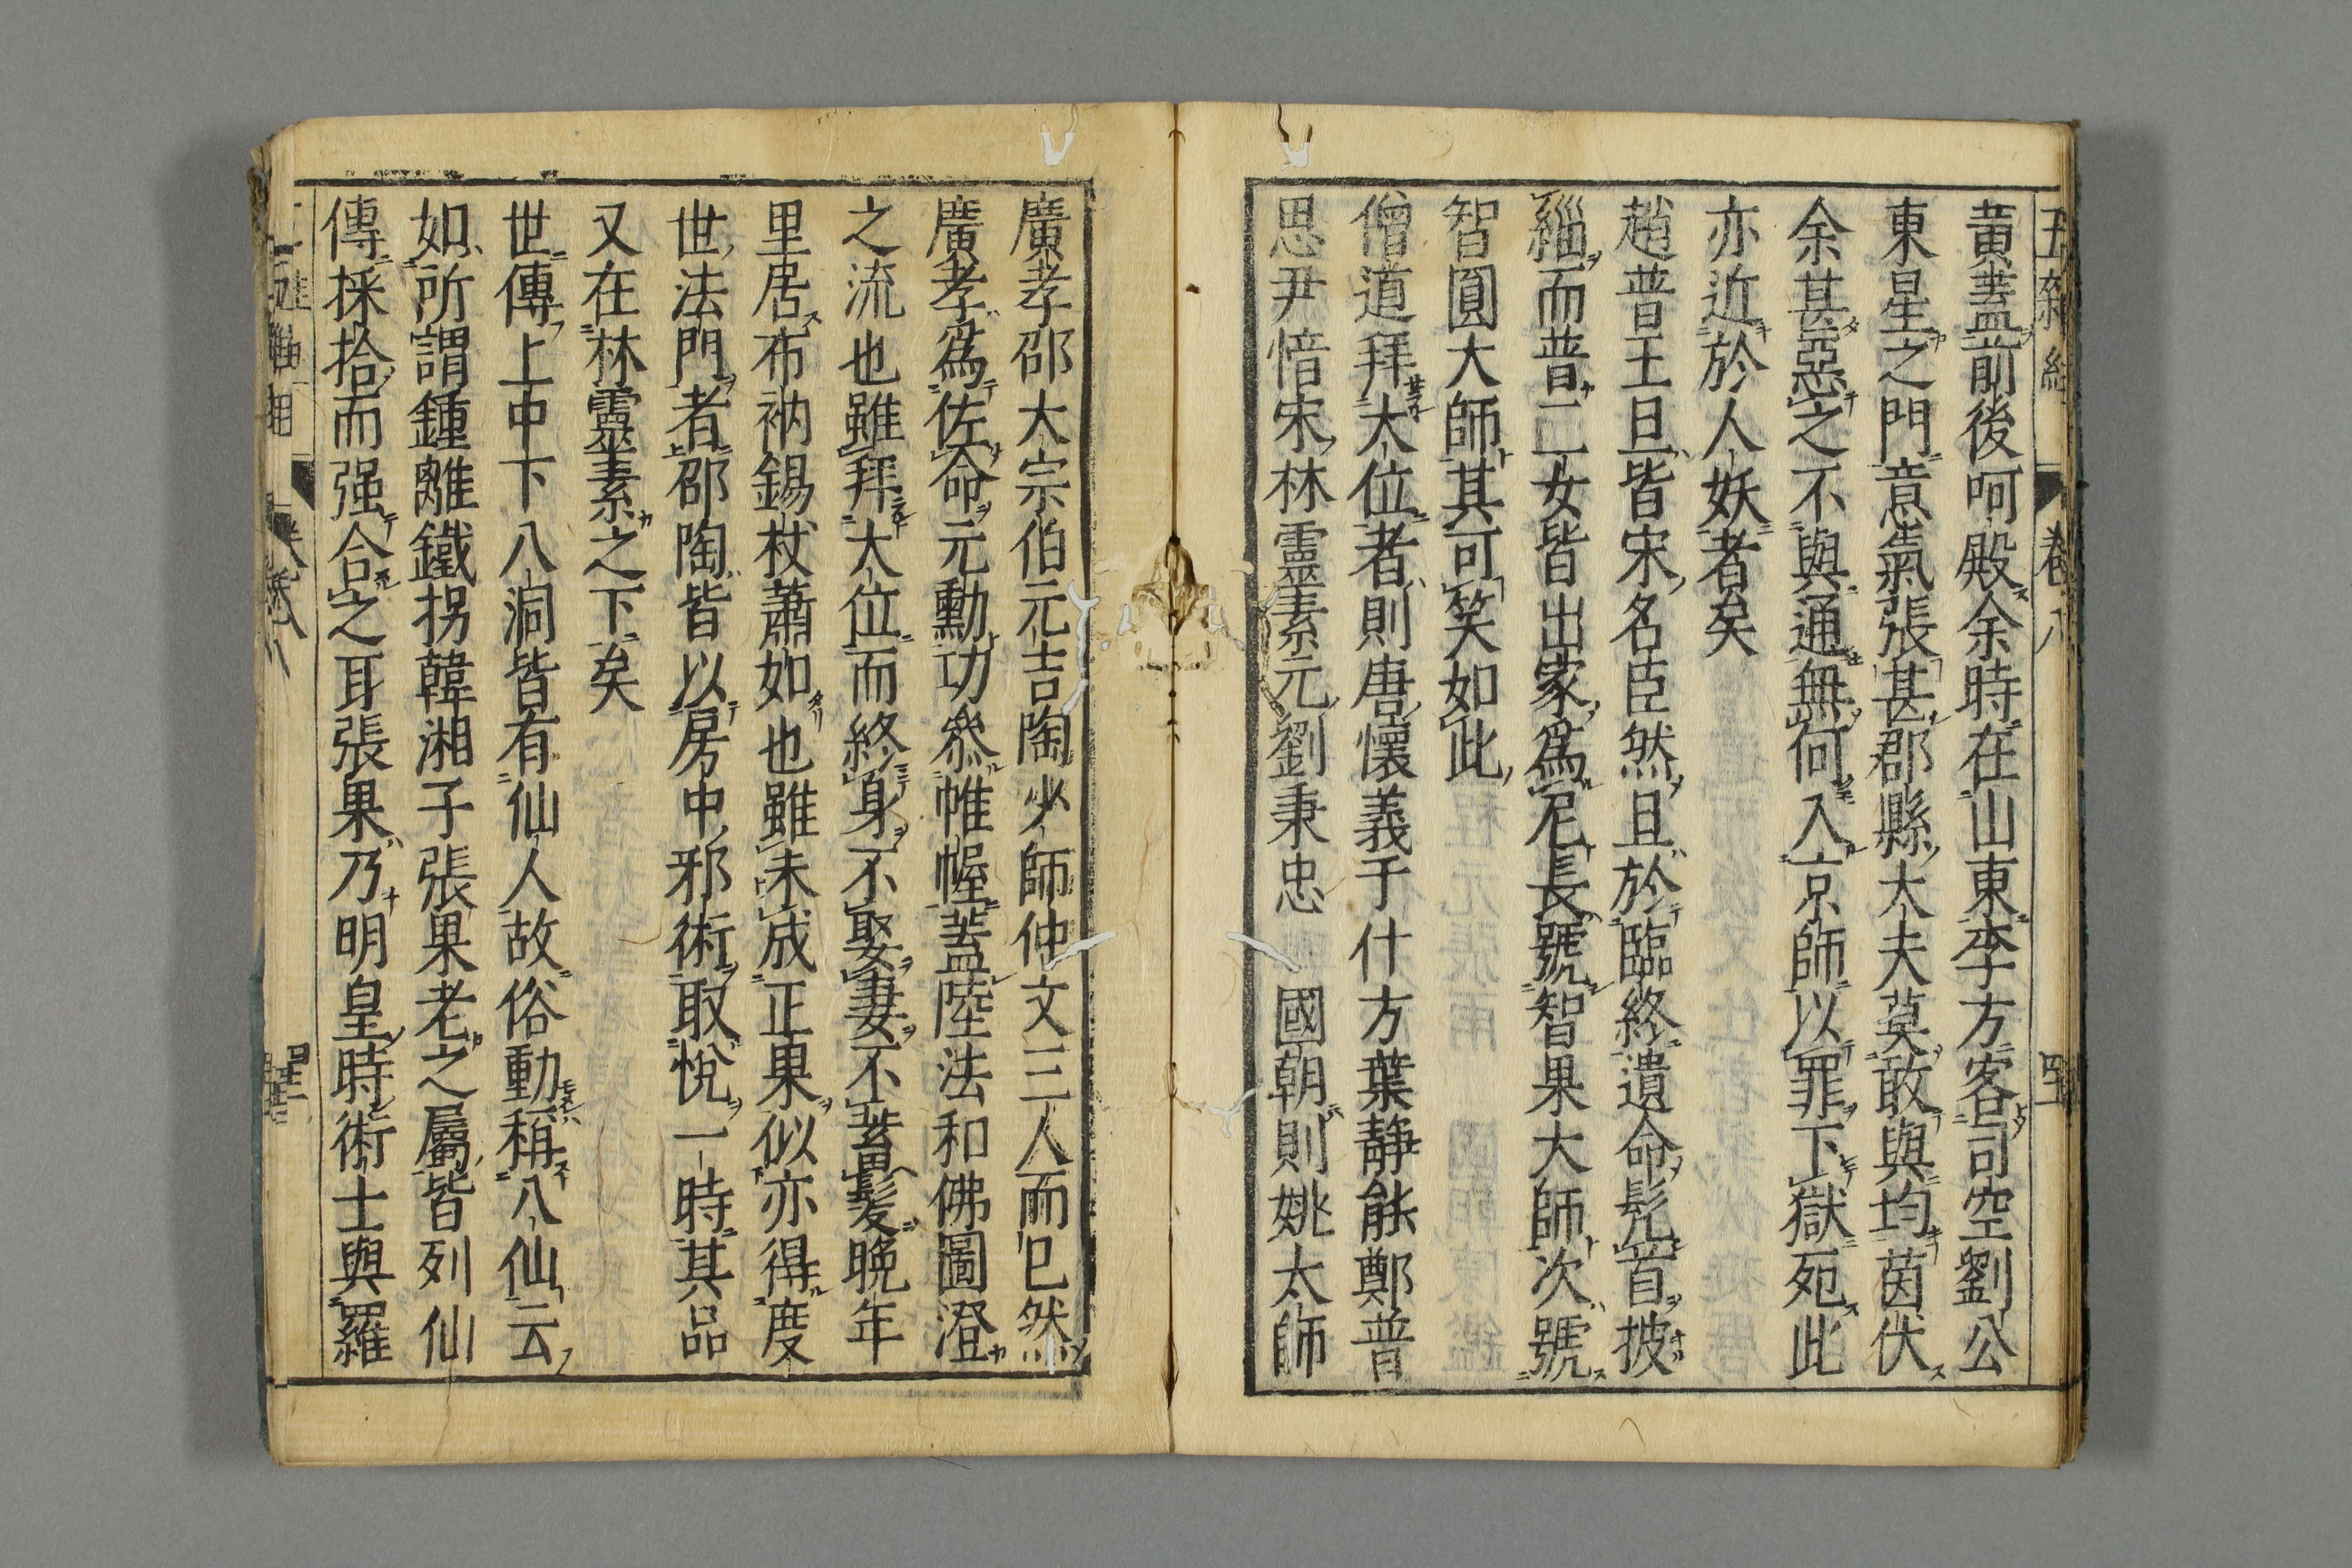 黄蓋前後呵殿余時在山東李方客司空劉公
東星之門意氣張甚郡縣大夫莫敢與均茵伏
余甚惡之不與通無何入京師以罪下獄死此
亦近於人妖者矣
趙普王旦皆宋名臣然且於臨終遺命髠首披
緇而普二女皆出家爲尼長號智果大師次號
智圓大師其可笑如此
僧道拜大位者則唐懷義于什方葉靜能鄭普
思尹愔宋林靈素元劉秉忠 國朝則姚太師
廣孝邵大宗伯元吉陶少師仲文三人而已然
廣孝爲佐命元勳功叅帷幄蓋陸法和佛圖澄
之流也雖拜大位而終身不娶妻不蓄髮晚年
里居布衲錫杖蕭如也雖未成正果似亦得度
世法門者邵陶皆以房中邪術取悅一時其品
又在林靈素之下矣
世傳上中下八洞皆有仙人故俗動稱八仙云
如所謂鍾離鐵拐韓湘子張果老之屬皆列仙
傳採拾而强合之耳張果乃明皇時術士與羅